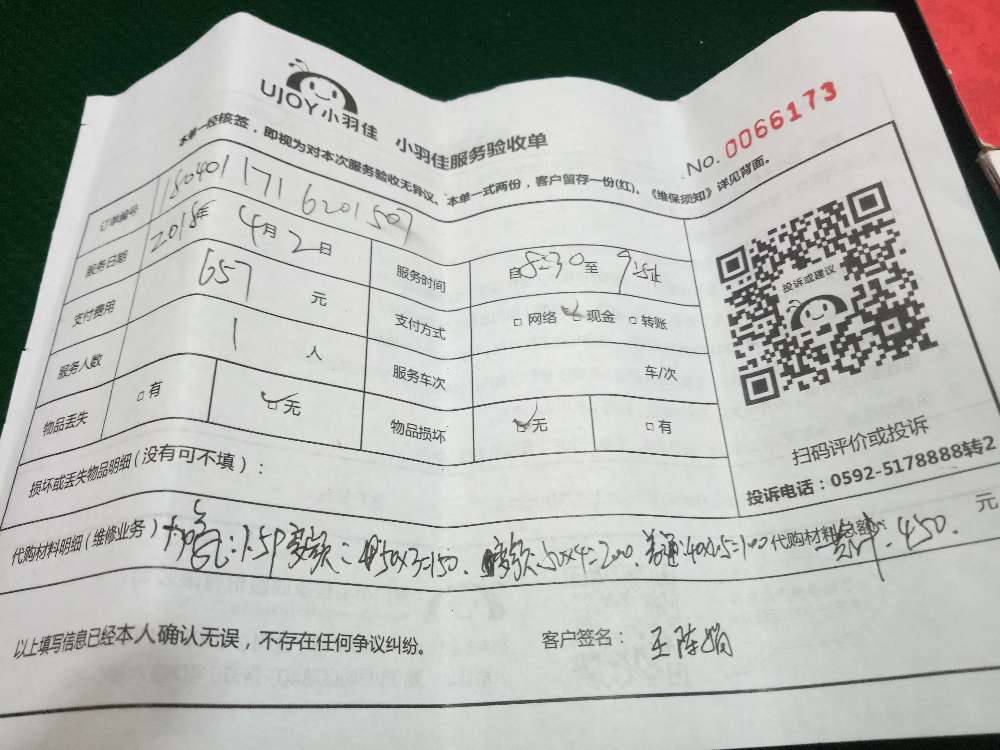 UJOY小羽佳 小羽佳服务验收单
No. 0066173
本单一经核签,即视为对本次服务验收无异议、本单一式两份,客户留存一份(红)、《维保须知》详见背面。
订单编号 180401171620150
服务日期 2018年 4月 2日 服务时间 自8:30至
支付费用 657 元 支付方式 □网络 □现金 □转账
服务人数 1 人 服务车次 车/次
物品丢失 □有 □无 物品损坏 □无 □有
投诉或建议
扫码评价或投诉
投诉电话:0592-5178888转2
损坏或丢失物品明细(没有可不填):
代购材料明细(维修业务) 加氟:1.5P变频: 50×3=150. 变频:50×4=200. 普通:40×2.5=100 代购材料总额: 450. 元
以上填写信息已经本人确认无误,不存在任何争议纠纷。 客户签名: 王陈娟